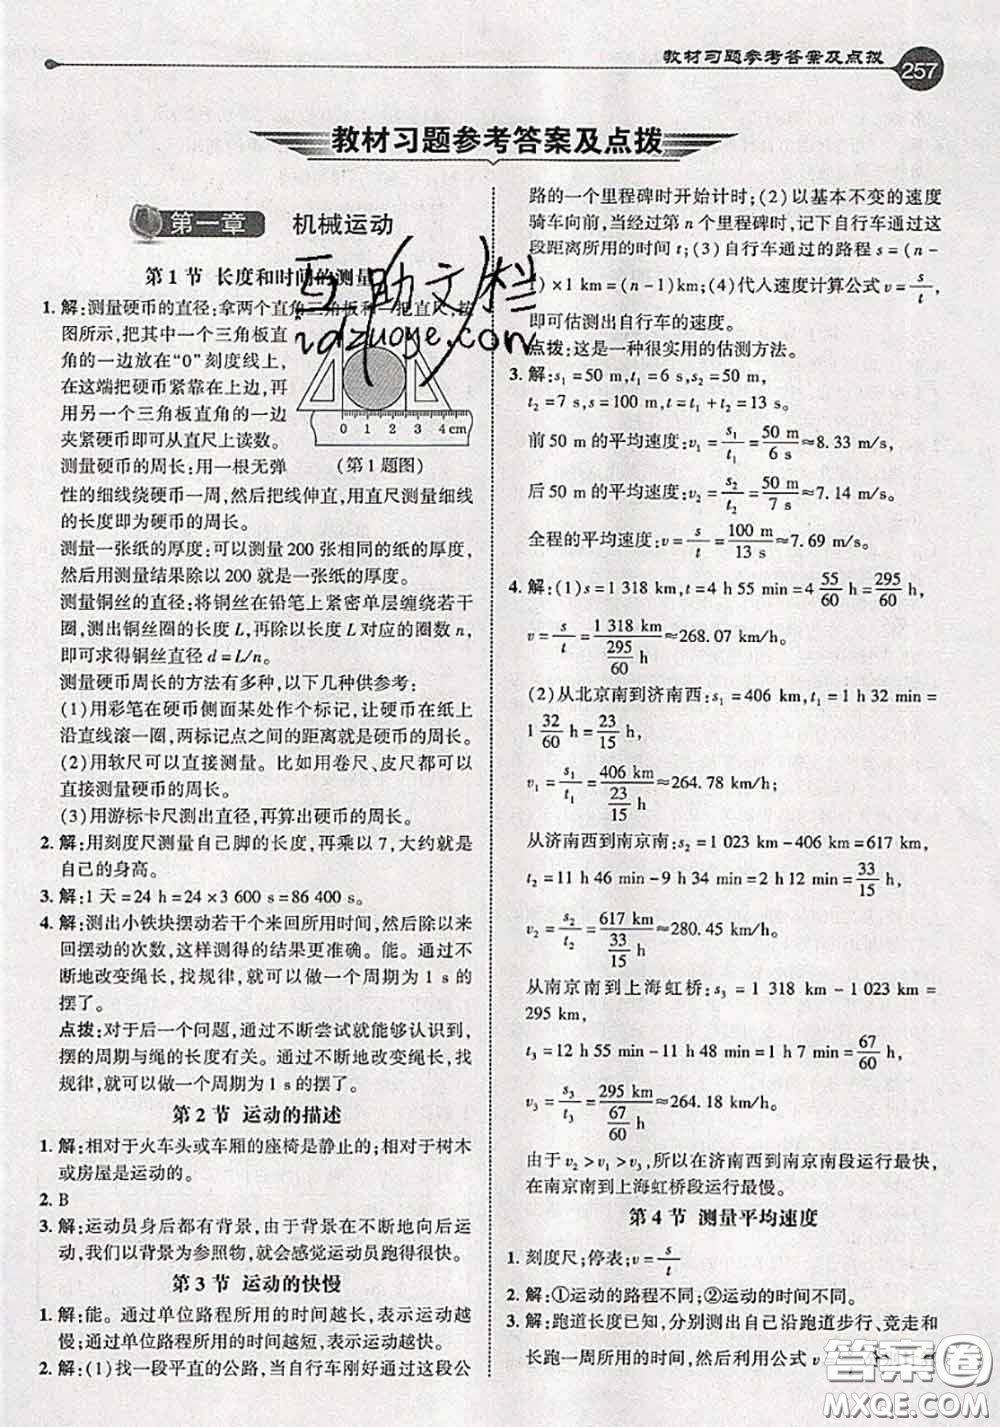 教材习题参考答案及点拨
257
教材习题参考答案及点拨
第一章 机械运动
第1节 长度和时间的测量
1. 解:测量硬币的直径:拿两个直角三角板和一把直尺,按
图所示,把其中一个三角板直
角的一边放在“0”刻度线上,
在这端把硬币紧靠在上边,再
用另一个三角板直角的一边
夹紧硬币即可从直尺上读数。
0 1 2 3 4cm
(第1题图)
测量硬币的周长:用一根无弹
性的细线绕硬币一周,然后把线伸直,用直尺测量细线
的长度即为硬币的周长。
测量一张纸的厚度:可以测量200张相同的纸的厚度,
然后用测量结果除以200就是一张纸的厚度。
测量铜丝的直径:将铜丝在铅笔上紧密单层缠绕若干
圈,测出铜丝圈的长度L,再除以长度L对应的圈数n,
即可求得铜丝直径d=L/n。
测量硬币周长的方法有多种,以下几种供参考:
(1)用彩笔在硬币侧面某处作个标记,让硬币在纸上
沿直线滚一圈,两标记点之间的距离就是硬币周长。
(2)用软尺可以直接测量。比如用卷尺、皮尺都可以
直接测量硬币的周长。
(3)用游标卡尺测出直径,再算出硬币周长。
2. 解:用刻度尺测量自己脚的长度,再乘以7,大约就是
自己的身高。
3. 解:1天=24 h=24×3 600 s=86 400 s。
4. 解:测出小铁块摆动若干个来回所用时间,然后除以来
回摆动的次数,这样测得的结果更精确些。能。通过不
断地改变绳长,找规律,就可以做一个周期为1 s的
摆了。
点拨:对于后一个问题,通过不断尝试就能够认识到,
摆的周期与绳的长度有关。通过不断地改变绳长,找
规律,就可以做一个周期为1 s的摆了。
第2节 运动的描述
1. 解:相对于火车头或车厢的座椅是静止的;相对于树木
或房屋是运动的。
2. B
3. 解:运动员身后都有背景,由于背景不断地向后运
动,我们以背景为参照物,就会感觉运动员跑得很快。
第3节 运动的快慢
1. 解:能。通过单位路程所用的时间越长,表示运动越
慢;通过单位路程所用的时间越短,表示运动越快。
2. 解:(1)找一段平直的公路,当自行车刚好通过这段公
路的一个里程碑时开始计时;(2)以基本不变的速度
骑车向前,当经过第n个里程碑时,记下自行车通过这
段距离所用的时间t;(3)自行车通过的路程s=(n-
1)×1 km=(n-1)km;(4)代入速度计算公式v=s/t,
即可估测出自行车的速度。
点拨:这是一种很实用的估测方法。
3. 解:s₁=50 m,t₁=6 s,s₂=50 m,
t₂=7 s,s=100 m,t=t₁+t₂=13 s。
前50 m的平均速度:v₁=s₁/t₁=50 m/6 s≈8.33 m/s,
后50 m的平均速度:v₂=s₂/t₂=50 m/7 s≈7.14 m/s,
全程的平均速度:v=s/t=100 m/13 s≈7.69 m/s。
4. 解:(1)s=1 318 km,t=4 h 55 min=4 55/60 h=295/60 h,
v=s/t=1 318 km/(295/60 h)≈268.07 km/h。
(2)从北京南到济南西:s₁=406 km,t₁=1 h 32 min=
1 32/60 h=23/15 h,
v₁=s₁/t₁=406 km/(23/15 h)≈264.78 km/h。
从济南西到南京南:s₂=1 023 km-406 km=617 km,
t₂=11 h 46 min-9 h 34 min=2 h 12 min=33/15 h,
v₂=s₂/t₂=617 km/(33/15 h)≈280.45 km/h。
从南京南到上海虹桥:s₃=1 318 km-1 023 km=
295 km,
t₃=12 h 55 min-11 h 48 min=1 h 7 min=67/60 h,
v₃=s₃/t₃=295 km/(67/60 h)≈264.18 km/h。
由于v₂>v₁>v₃,所以在济南西到南京南段运行最快,
在南京南到上海虹桥段运行最慢。
第4节 测量平均速度
1. 刻度尺;停表;v=s/t
2. 解:①运动的路程不同;②运动的时间不同。
3. 解:跑道长度已知,分别测出自己沿跑道步行、竞走和
长跑一周所用的时间,然后利用公式v
互助文档
idzuoye.com
答案卷
MXQE.COM